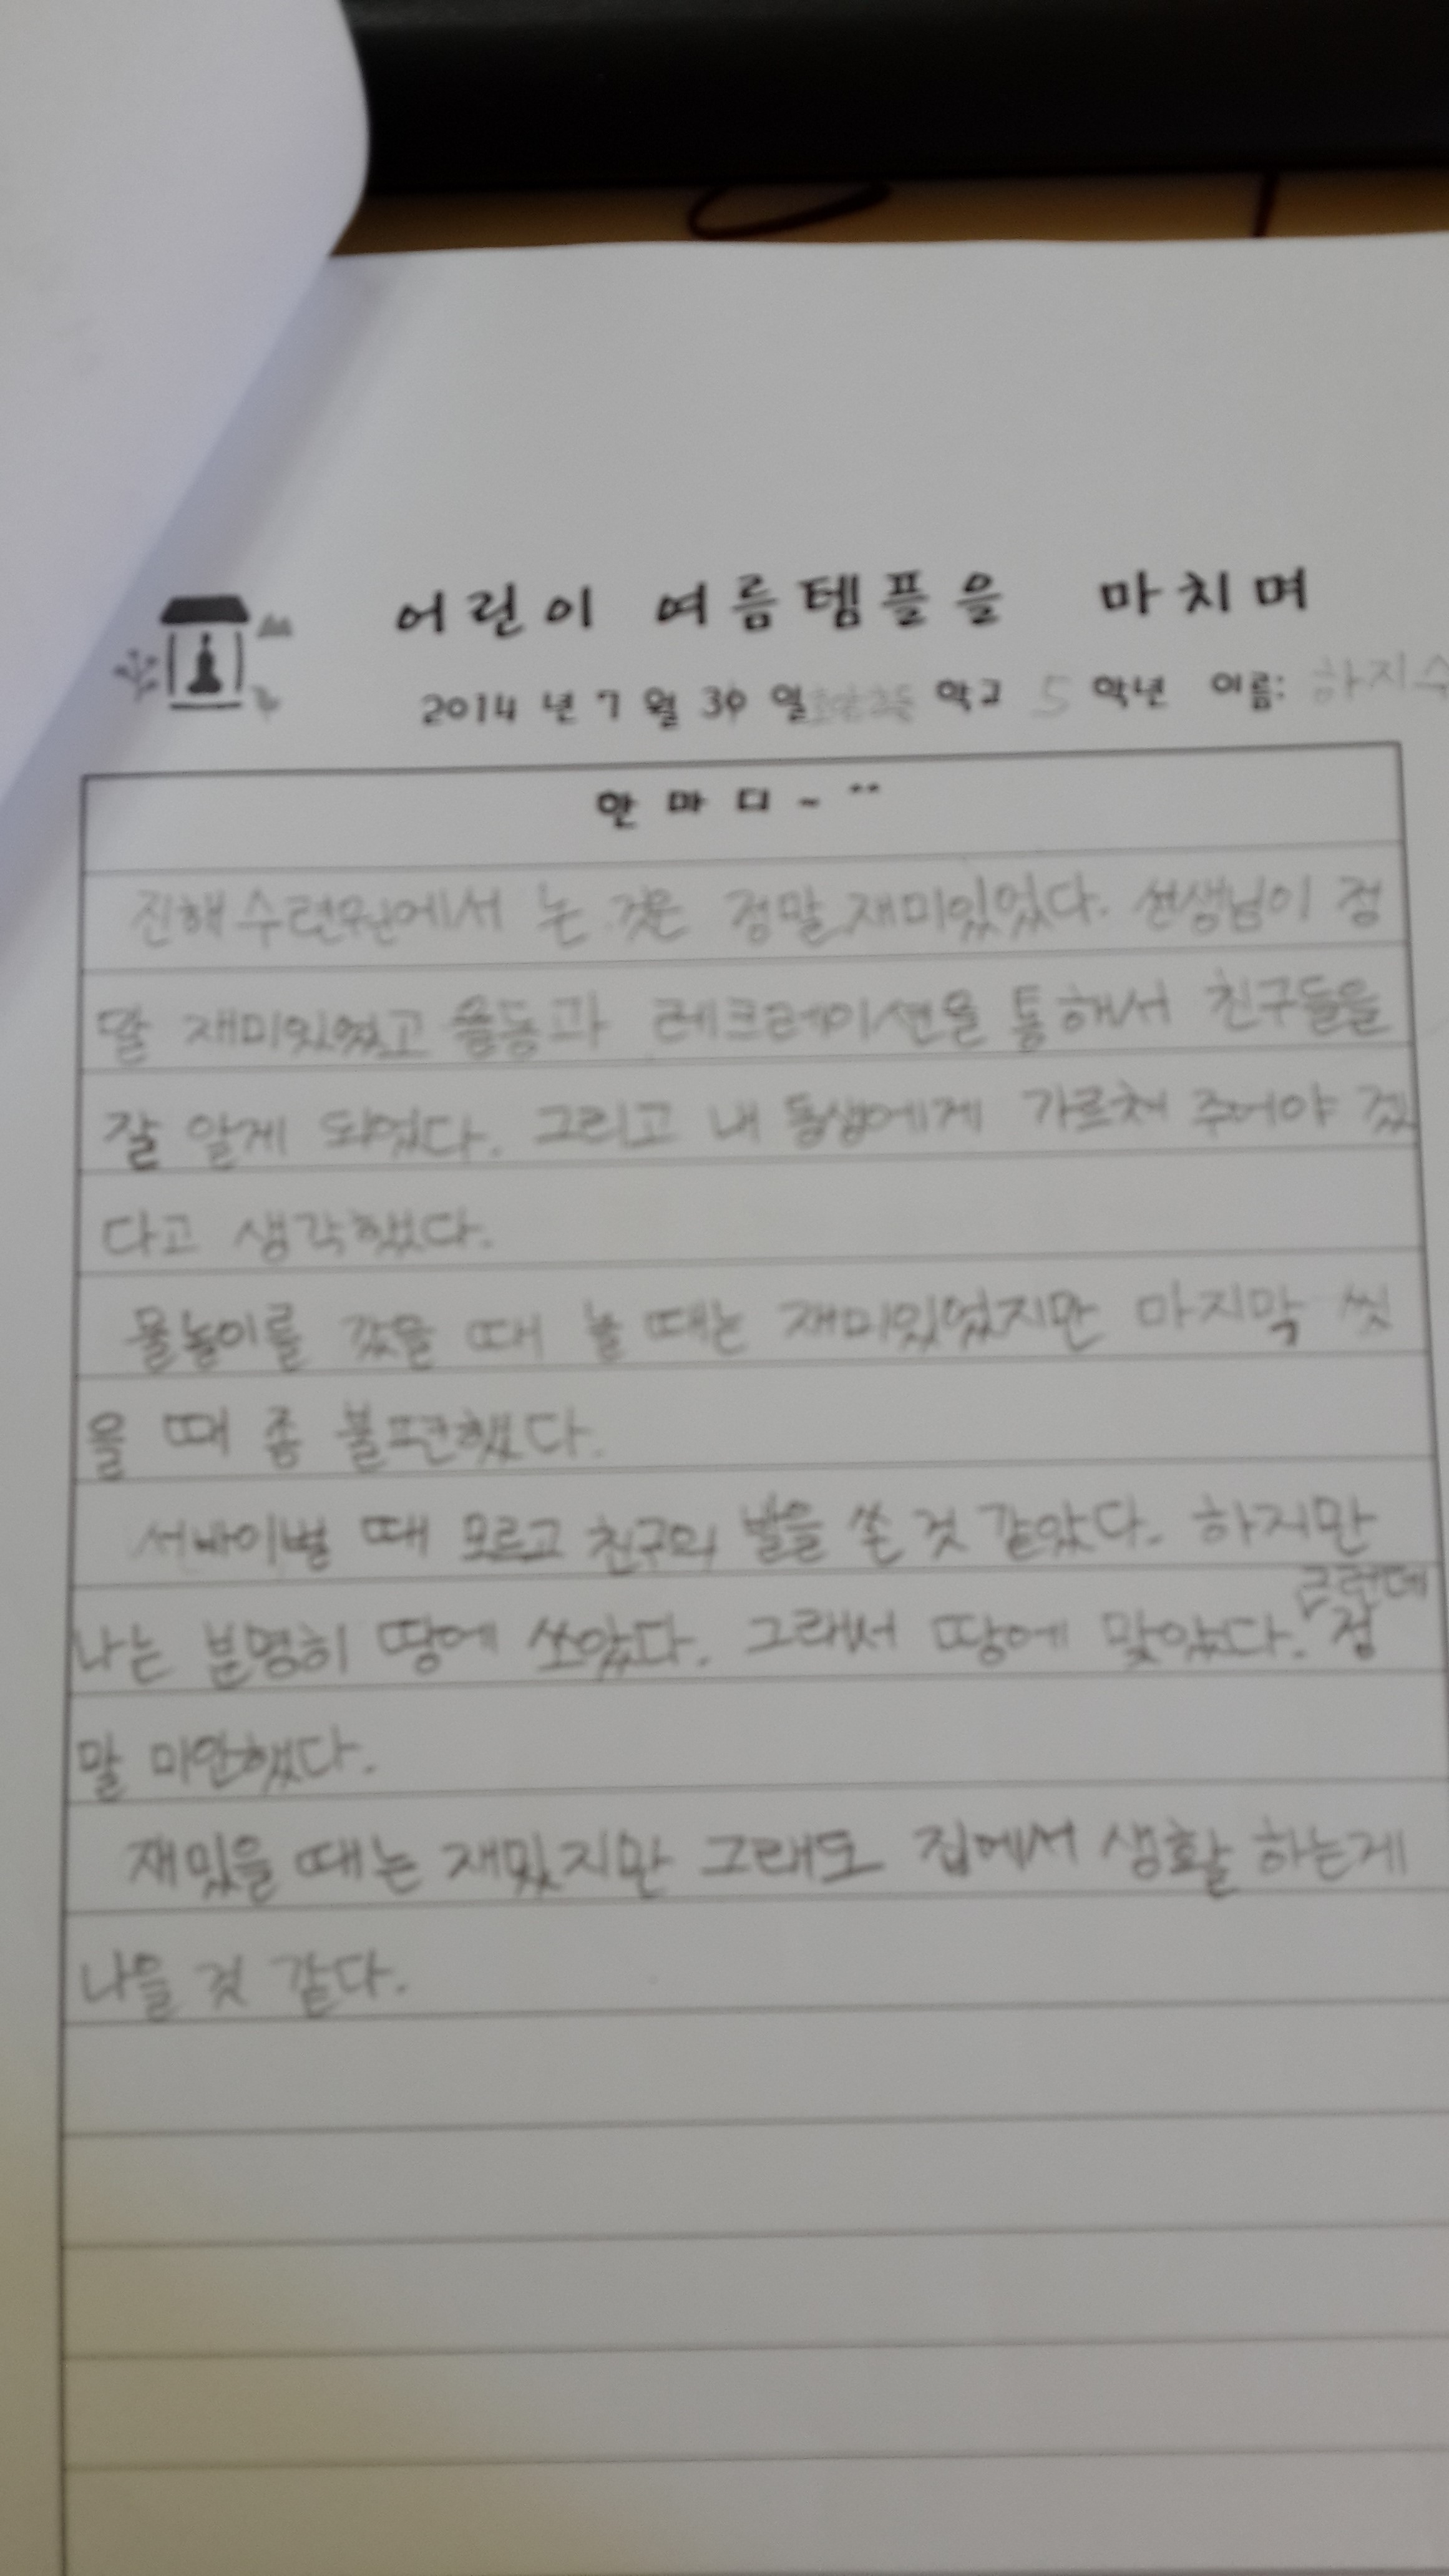 어린이 여름템플을 마치며
2014 년 7 월 30 일 학교 5 학년 이름: 하지수
한 마 디 ~ ^^
진해수련원에서 논 것은 정말 재미있었다. 선생님이 정
말 재미있었고 율동과 레크레이션을 통해서 친구들을
잘 알게 되었다. 그리고 내 동생에게 가르쳐 주어야 겠
다고 생각했다.
물놀이를 갔을 때 놀 때는 재미있었지만 마지막 씻
을 때 좀 불편했다.
서바이벌 때 모르고 친구의 발을 쏜 것 같았다. 하지만
나는 분명히 땅에 쏘았다. 그래서 땅에 맞았다. 그런데 정
말 미안했다.
재밌을 때는 재밌지만 그래도 집에서 생활 하는게
나을 것 같다.